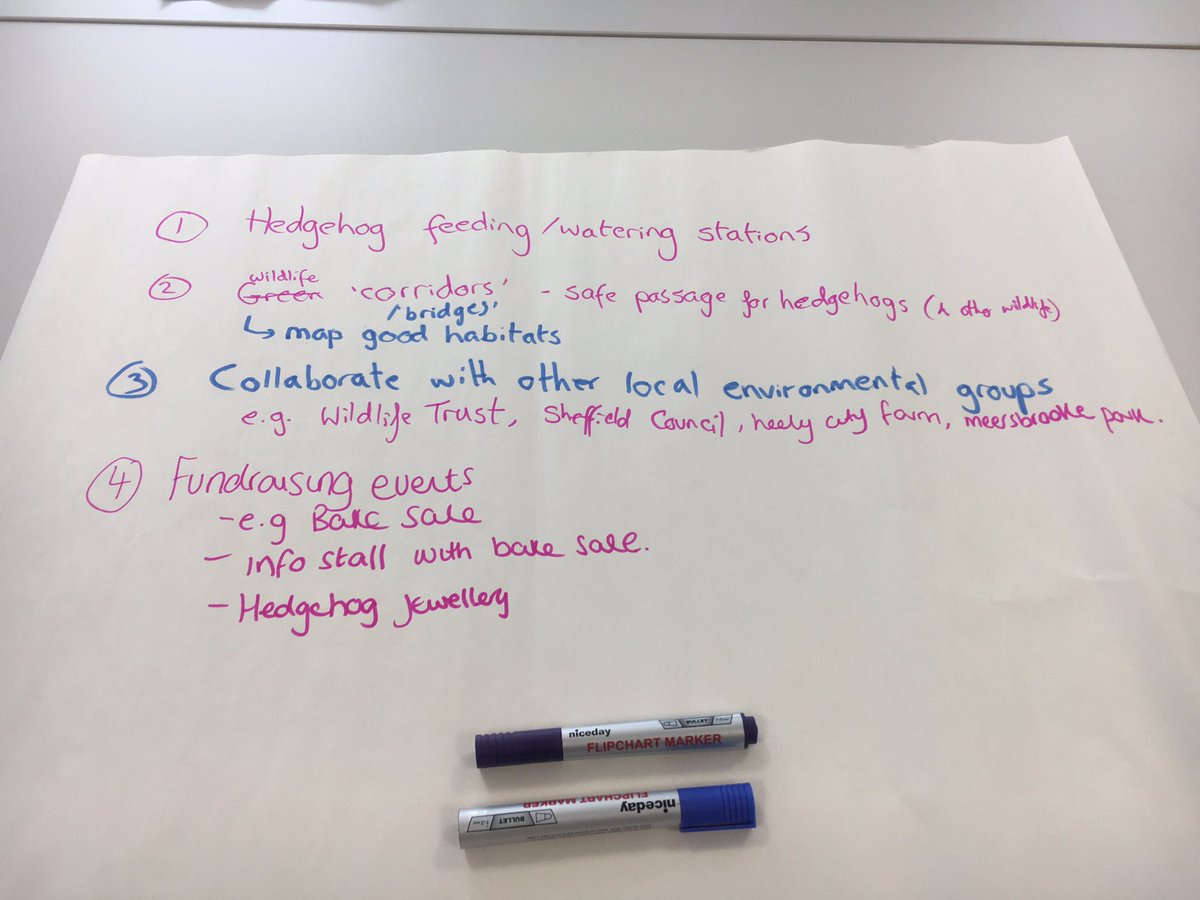 ① Hedgehog feeding/watering stations
wildlife
② Green 'corridors' - safe passage for hedgehogs (& other wildlife)
/bridges'
↳ map good habitats
③ Collaborate with other local environmental groups
e.g. Wildlife Trust, Sheffield Council, heely city farm, meersbrooke park.
④ Fundraising events
- e.g Bake sale
- info stall with bake sale.
- Hedgehog jewellery
niceday
FLIPCHART MARKER
BULLET
niceday
FLIPCHART MARKER
BULLET